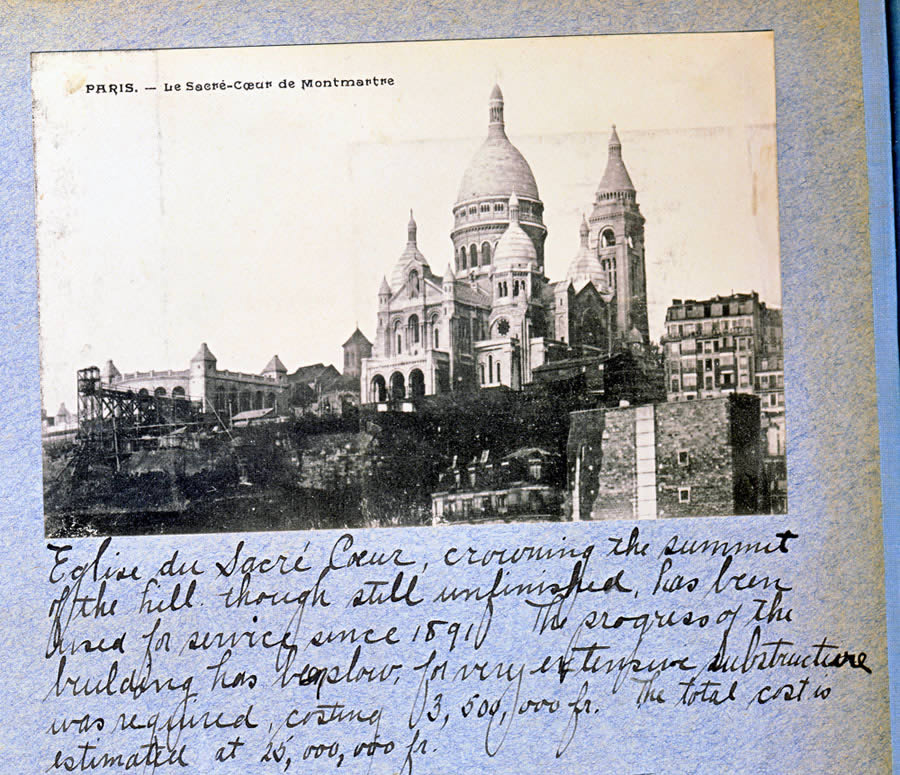 PARIS. — Le Sacré-Cœur de Montmartre
Eglise du Sacré Cœur, crowning the summit
of the hill. though still unfinished, has been
used for service since 1891. The progress of the
building has been slow, for very extensive substructure
was required, costing 3,500,000 fr. The total cost is
estimated at 25,000,000 fr.